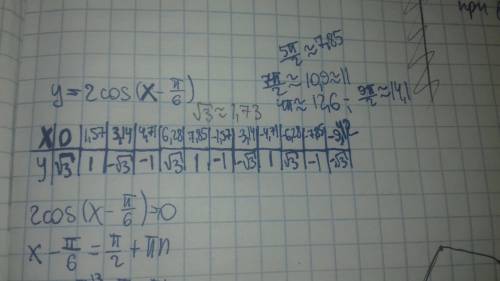 при
5π/2 ≈ 7,85
7π/2 ≈ 10,9 ≈ 11
y = 2cos(x - π/6)
4π ≈ 12,6; 9π/2 ≈ 14,1
√3 ≈ 1,73
x 0 1,57 3,14 4,71 6,28 7,85 -1,57 -3,14 -4,71 -6,28 -7,85
y √3 1 -√3 -1 √3 1 -1 -√3 1 √3 -1 -√3
2cos(x - π/6) = 0
x - π/6 = π/2 + πn